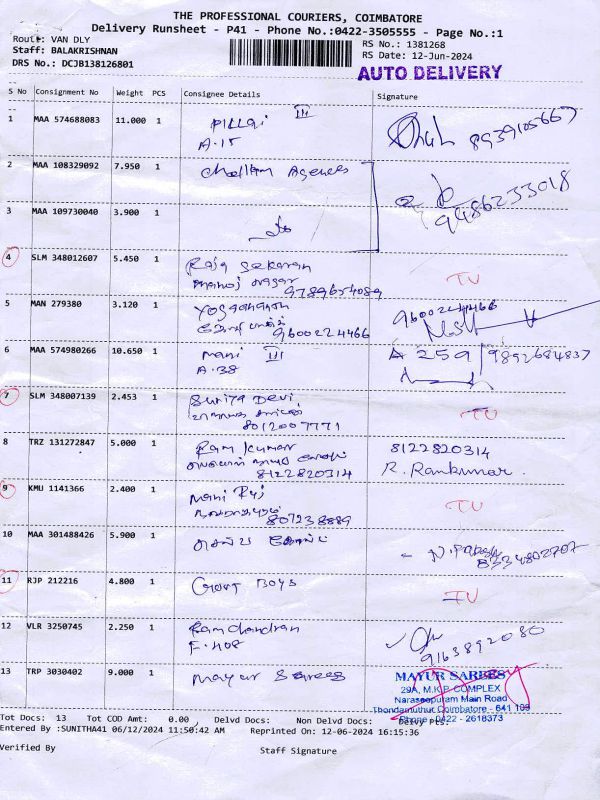 THE PROFESSIONAL COURIERS, COIMBATORE
Delivery Runsheet - P41 - Phone No.:0422-3505555 - Page No.:1
Route: VAN DLY
Staff: BALAKRISHNAN
DRS No.: DCJB138126801
RS No.: 1381268
RS Date: 12-Jun-2024
AUTO DELIVERY
S No Consignment No Weight PCS Consignee Details Signature
1 MAA 574688083 11.000 1 Pillai III
A-15
8939105667
2 MAA 108329092 7.950 1 Agences
9486233018
3 MAA 109730040 3.900 1
4 SLM 348012607 5.450 1 Raja Sekaran
nagar
9789654089
5 MAN 279380 3.120 1 Yoganathan
9600224466
9600224466
6 MAA 574980266 10.650 1 Mani III
A-38
A 259 9892684837
7 SLM 348007139 2.453 1 Suriya Devi
8012007771
8 TRZ 131272847 5.000 1 Ram Kumar
8122820314
8122820314
R. Ramkumar.
9 KMU 1141366 2.400 1 Mani Raj
807238889
10 MAA 301488426 5.900 1
8334802707
11 RJP 212216 4.800 1 Govt Boys
12 VLR 3250745 2.250 1 Ramchandran
F-408
9163892080
13 TRP 3030402 9.000 1 Mayur Sarees
MAYUR SAREES
29A, M.K.P. COMPLEX
Naraseepuram Main Road
Thondamuthur, Coimbatore - 641 109
Phone : 0422 - 2618373
Tot Docs: 13 Tot COD Amt: 0.00 , Delvd Docs: Non Delvd Docs: Delvy Pts:
Entered By :SUNITHA41 06/12/2024 11:50:42 AM Reprinted On: 12-06-2024 16:15:36
Verified By Staff Signature